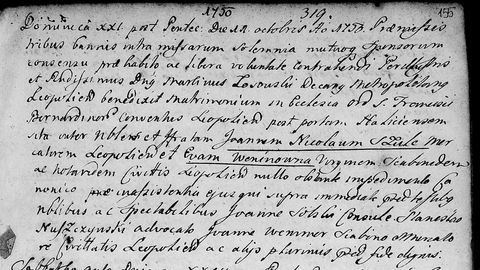 1750 319 155
Dominica XXI post Pentec: Die 12 octobris Ao 1753. Præmissis
tribus bannis intra missarum solemnia mutuoq Sponsorum
consensu præhabito ac libera voluntate Contrahendi
et Rndissimus Dnus Martinus Decanus Metropolitanus
Leopolien benedixit matrimonium in Ecclesia ord S. Francisci
Bernardinor Conventus Leopolien post portam Haliciensem
sita inter Nobilem et Joannem Nicolaum Szulc Mer
catorem Leopolien et Evam Weninowna Virginem
ac notariden Civitis Leopolien nullo obstante impedimento Ca
nonico præ in assistentia ejusqui supra immediate
nbilibus ac Spectabilibus Joanne Solski Consule Stanislao
advocato Joanne Wenner Scabino
re Civitatis Leopolien ac alijs plurimis fide dignis.